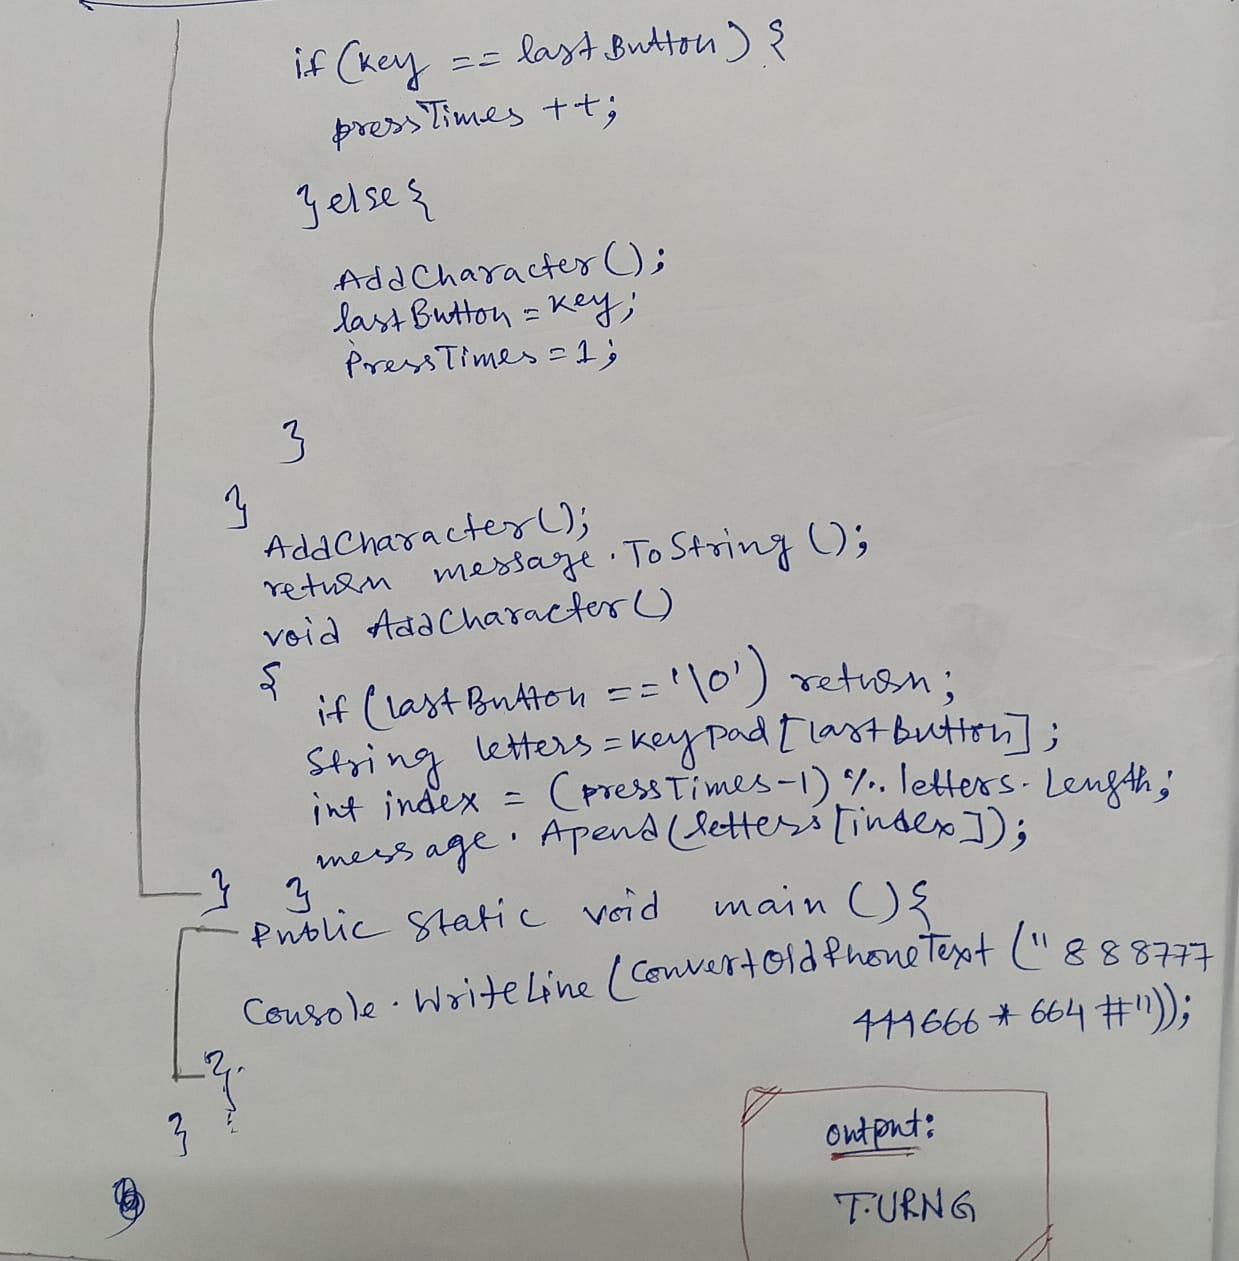 if (key == lastButton) {
pressTimes ++;
} else {
AddCharacter();
lastButton = key;
PressTimes = 1;
}
}
AddCharacter();
return message.ToString();
void AddCharacter()
{
if (lastButton == '\0') return;
String letters = keypad [lastButton];
int index = (pressTimes-1) % letters.Length;
message.Apend(letters[index]);
} }
Public Static void main () {
Console.WriteLine (ConvertOldPhoneText ("8 8 8777
444666 * 664 #"));
}
}
output:
T.URNG